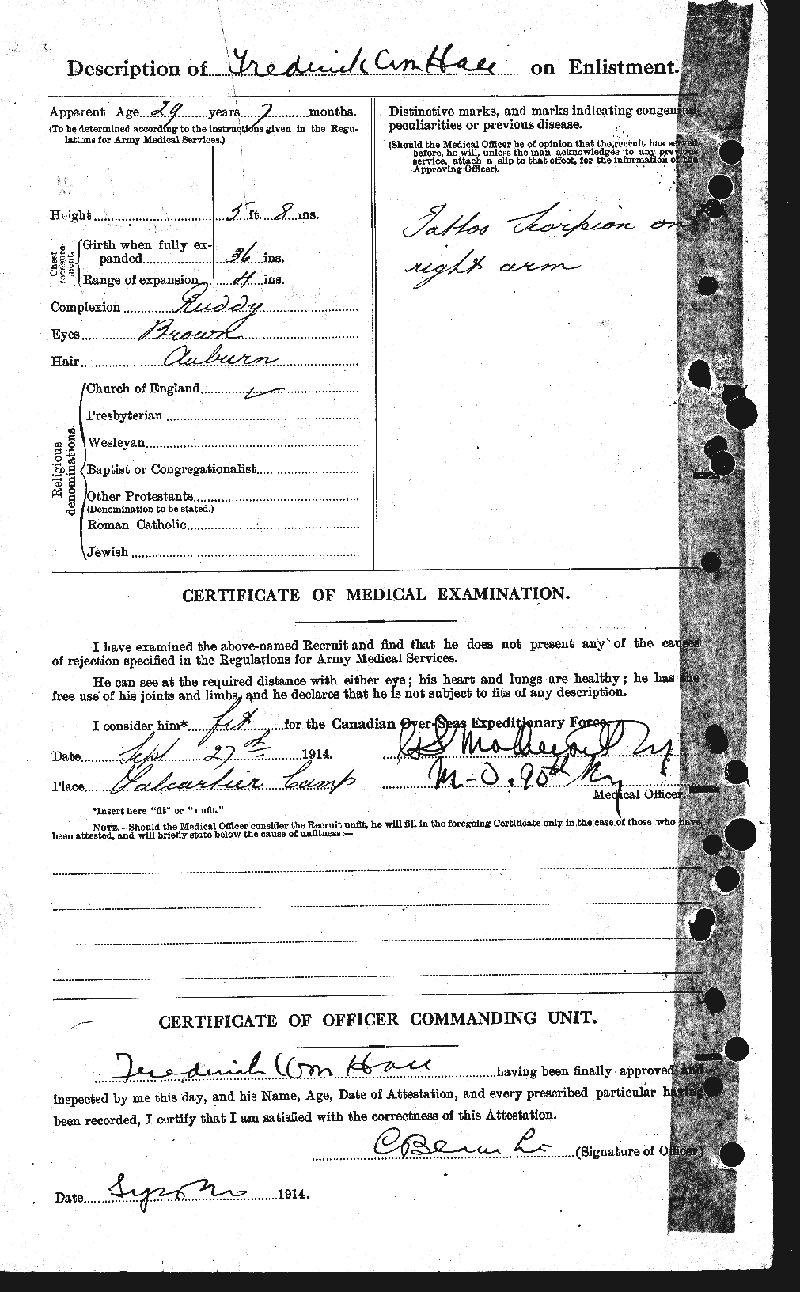 Description of Frederick Wm Hall on Enlistment.
Apparent Age 29 years 7 months.
(To be determined according to the instructions given in the Regulations for Army Medical Services.)
Height 5 ft. 8 ins.
Chest measurement
Girth when fully expanded 36 ins.
Range of expansion 4 ins.
Complexion Ruddy
Eyes Brown
Hair Auburn
Religious denominations.
Church of England
Presbyterian
Wesleyan
Baptist or Congregationalist
Other Protestants
(Denomination to be stated.)
Roman Catholic
Jewish
Distinctive marks, and marks indicating congenital
peculiarities or previous disease.
(Should the Medical Officer be of opinion that the recruit has served
before, he will, unless the man acknowledges to any previous
service, attach a slip to that effect, for the information of the
Approving Officer).
Tattoo Scorpion on
right arm
CERTIFICATE OF MEDICAL EXAMINATION.
I have examined the above-named Recruit and find that he does not present any of the causes
of rejection specified in the Regulations for Army Medical Services.
He can see at the required distance with either eye; his heart and lungs are healthy; he has the
free use of his joints and limbs, and he declares that he is not subject to fits of any description.
I consider him* fit for the Canadian Over-Seas Expeditionary Force.
Date Sept 27th 1914.
Place Valcartier Camp M-O. 90th
Medical Officer.
*Insert here "fit" or "unfit."
NOTE.-Should the Medical Officer consider the Recruit unfit, he will fill in the foregoing Certificate only in the case of those who have
been attested, and will briefly state below the cause of unfitness:-
CERTIFICATE OF OFFICER COMMANDING UNIT.
Frederick Wm Hall having been finally approved and
inspected by me this day, and his Name, Age, Date of Attestation, and every prescribed particular having
been recorded, I certify that I am satisfied with the correctness of this Attestation.
(Signature of Officer)
Date 1914.